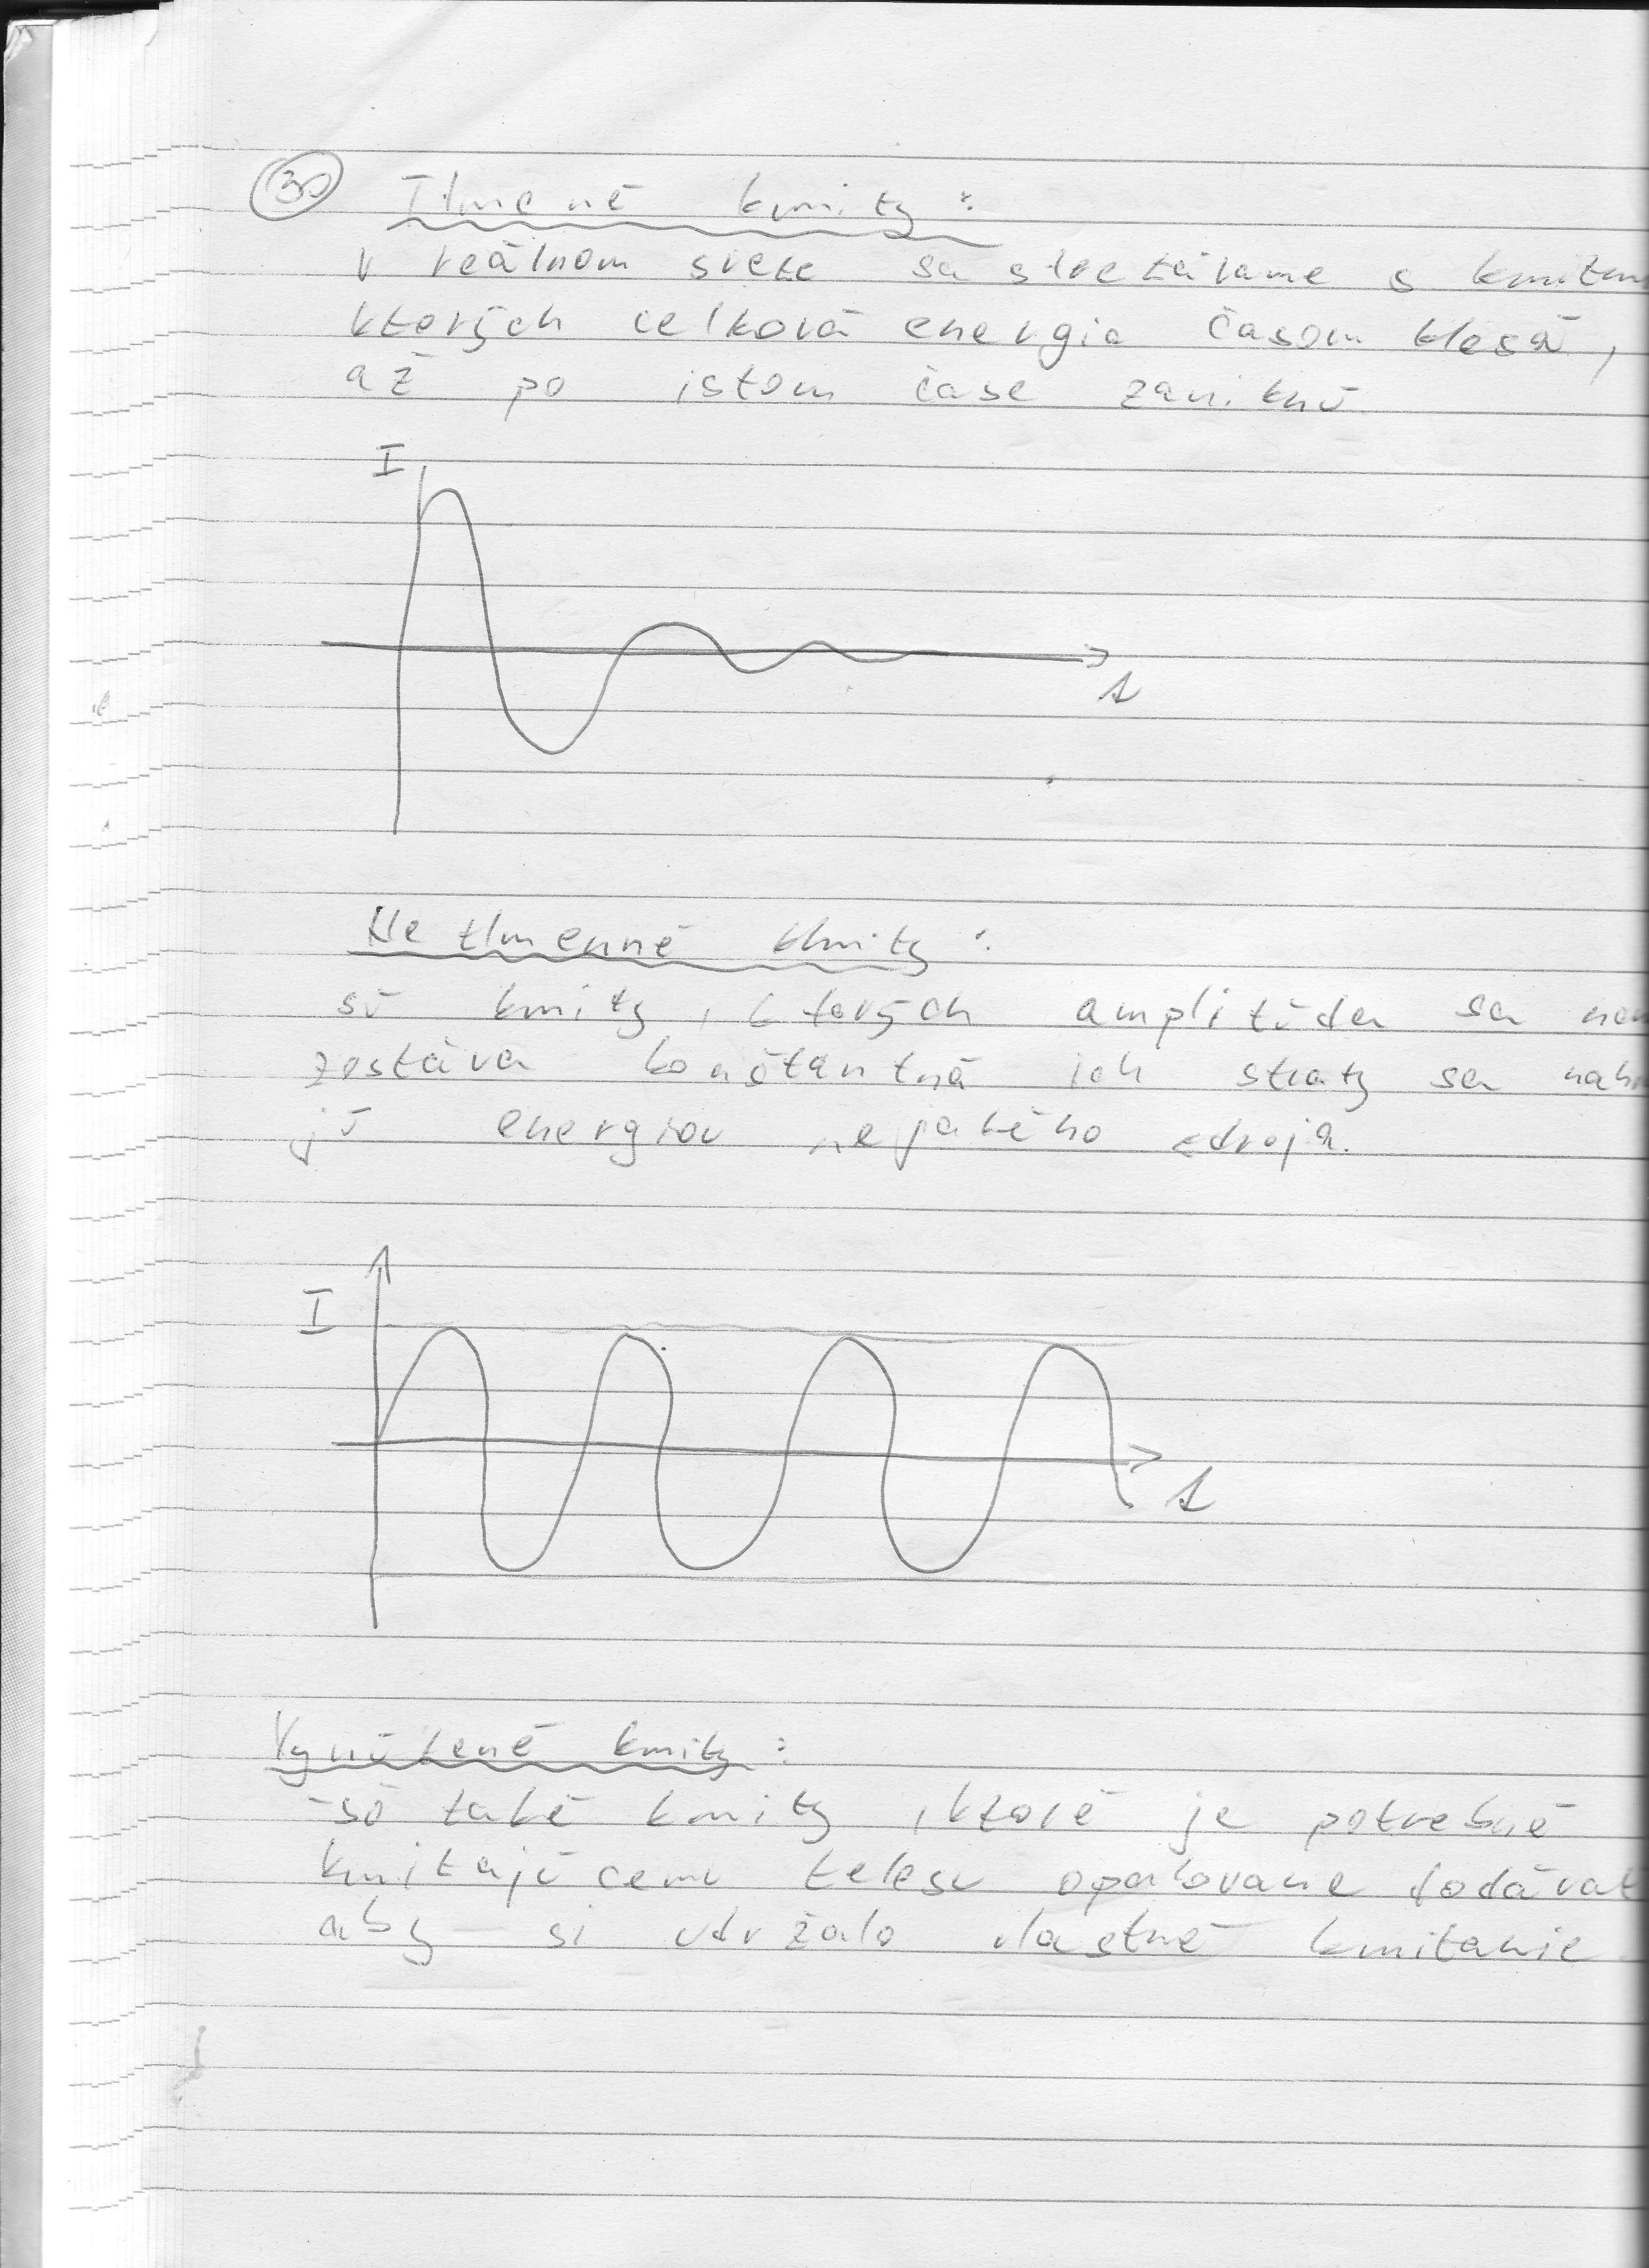 30 Tlmené kmity:
v reálnom svete sa stretávame s kmitm
ktorých celková energia časom klesá,
až po istom čase zaniknú
I
t
Netlmenné kmity:
sú kmity, ktorých amplitúda sa
zostáva konštantná ich straty sa nah
jú energiou nejakého zdroja.
I
t
Vynútené kmity:
-sú také kmity, ktoré je potrebné
kmitajúcemu telesu opakovane dodávat
aby si udržalo vlastné kmitanie